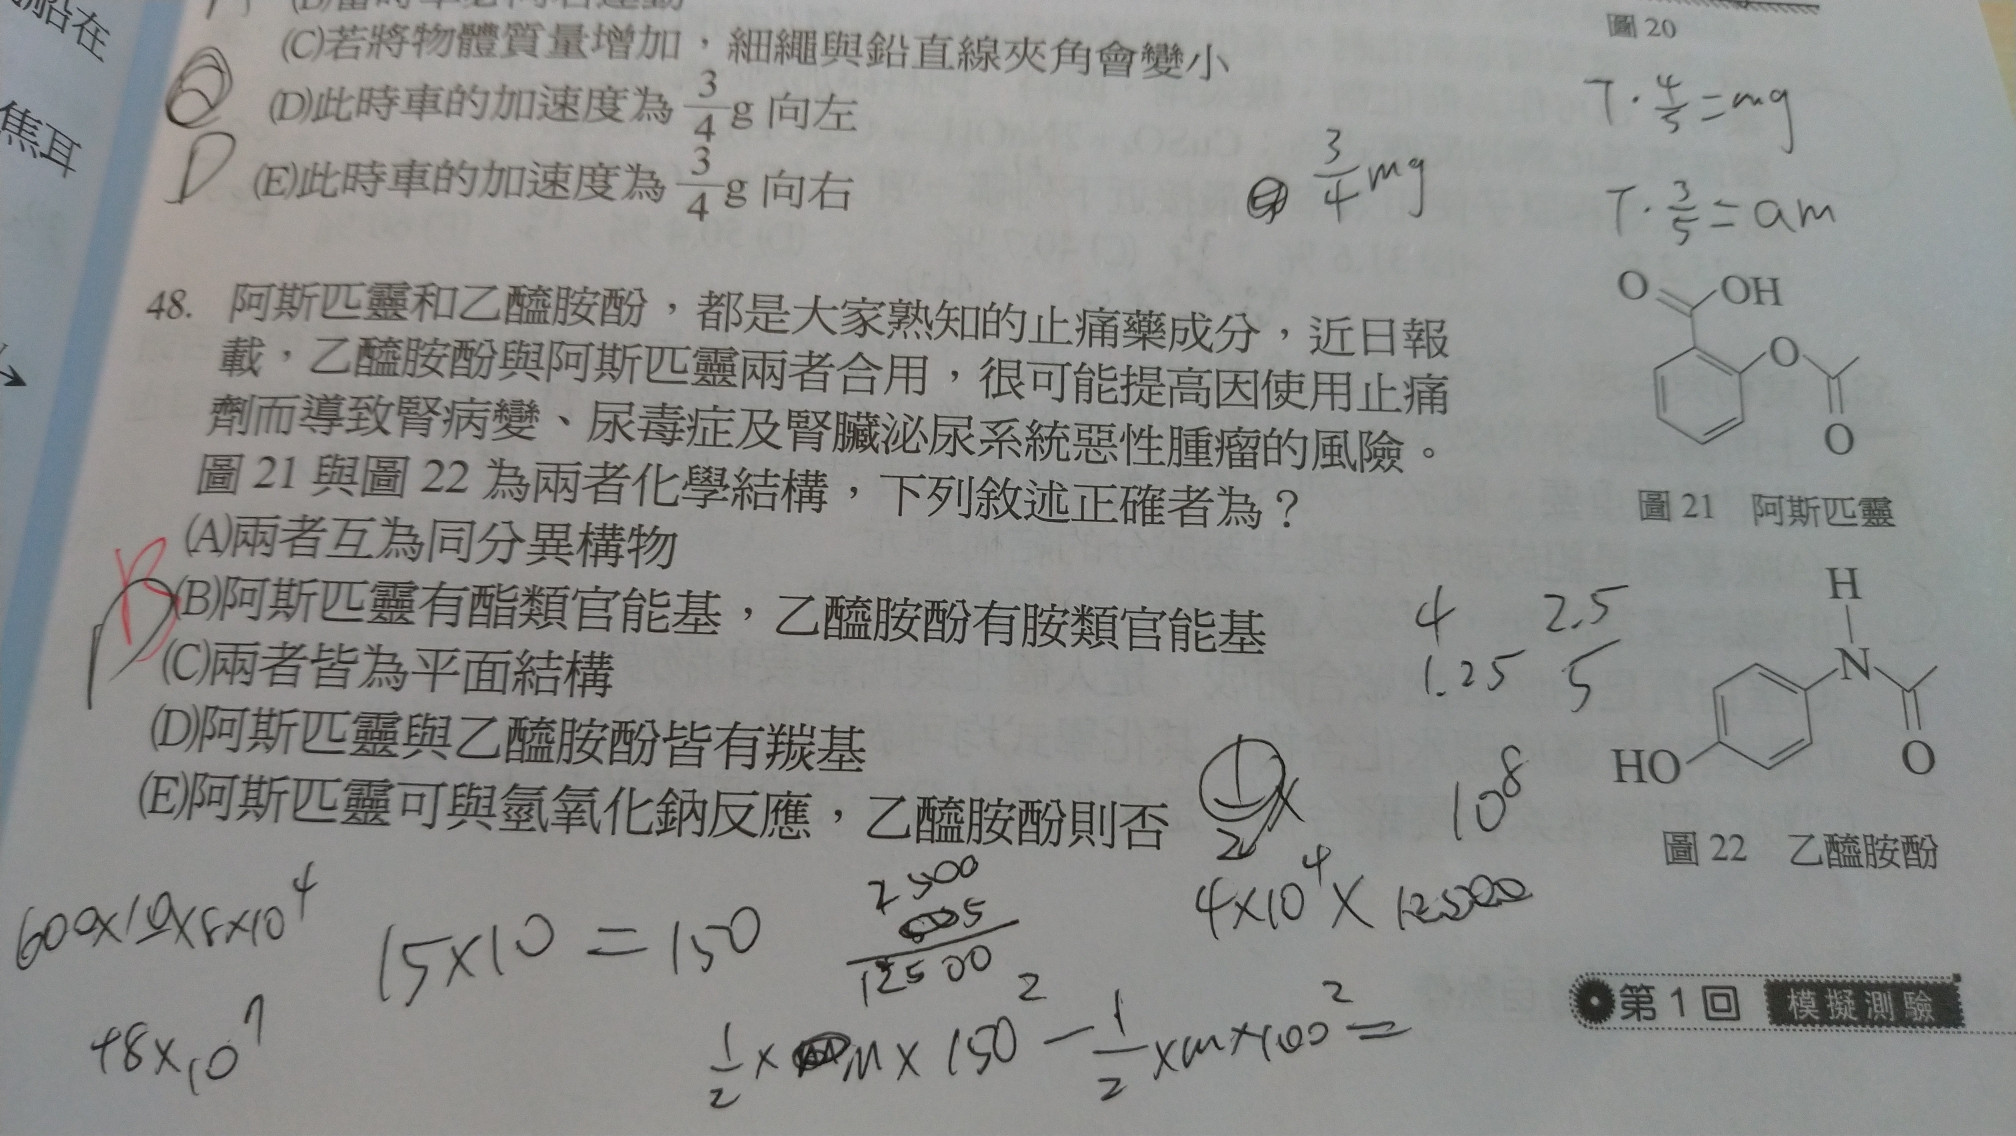 船在
焦耳
(C)若將物體質量增加，細繩與鉛直線夾角會變小
(D)此時車的加速度為 3/4 g 向左
D
(E)此時車的加速度為 3/4 g 向右
圖 20
T · 4/5 = mg
3/4 mg
T · 3/5 = am
48. 阿斯匹靈和乙醯胺酚，都是大家熟知的止痛藥成分，近日報
載，乙醯胺酚與阿斯匹靈兩者合用，很可能提高因使用止痛
劑而導致腎病變、尿毒症及腎臟泌尿系統惡性腫瘤的風險。
圖 21 與圖 22 為兩者化學結構，下列敘述正確者為？
(A)兩者互為同分異構物
B
(B)阿斯匹靈有酯類官能基，乙醯胺酚有胺類官能基
(C)兩者皆為平面結構
(D)阿斯匹靈與乙醯胺酚皆有羰基
(E)阿斯匹靈可與氫氧化鈉反應，乙醯胺酚則否
O OH
O
O
圖 21 阿斯匹靈
H
N
HO O
圖 22 乙醯胺酚
4 2.5
1.25 5
10^8
4×10^4×
15×10=150
12500
48×10^7
1/2 × m × 150^2 − 1/2 × m × 100^2 =
第 1 回 模擬測驗